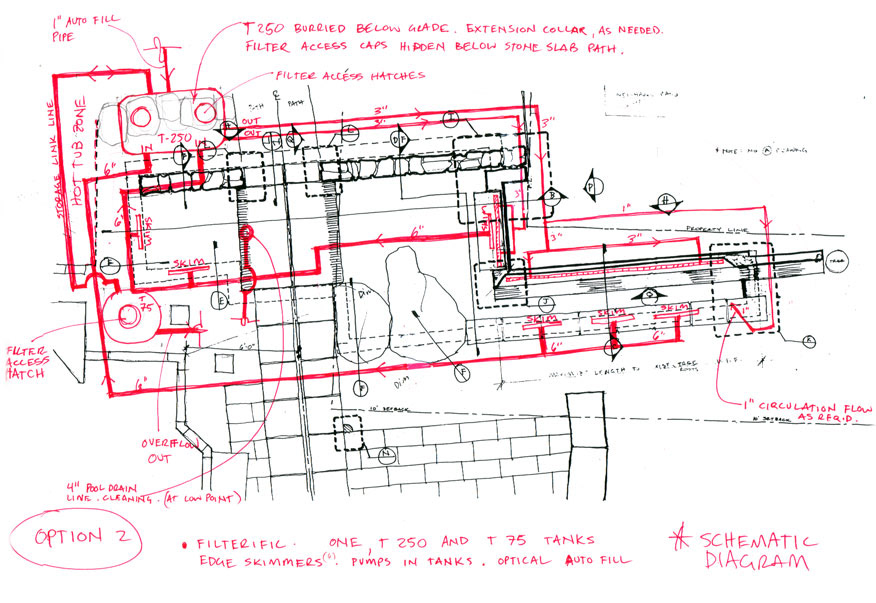 1" AUTO FILL
PIPE
T 250 BURRIED BELOW GLADE. EXTENSION COLLAR, AS NEEDED.
FILTER ACCESS CAPS HIDDEN BELOW STONE SLAB PATH.
FILTER ACCESS HATCHES
STORAGE LINK LINE
HOT TUB ZONE
T-250
IN
IN
OUT
OUT
PATH
3"
3"
3"
3"
3"
3"
1"
PROPERTY LINE
6"
6"
6"
SKIM
SKIM
SKIM
SKIM
SKIM
SKIM
T
75
TREE
1"
6"
6"
6"
DIM
DIM
FILTER
ACCESS
HATCH
OVERFFLOW
OUT
4" POOL DRAIN
LINE. CLEANING. (AT LOW POINT)
LENGTH TO
10' SETBACK
10' SETBACK
1" CIRCULATION FLOW
AS REQ.D.
OPTION 2
• FILTERIFIC. ONE, T 250 AND T 75 TANKS
EDGE SKIMMERS(6). PUMPS IN TANKS. OPTICAL AUTO FILL
* SCHEMATIC
DIAGRAM